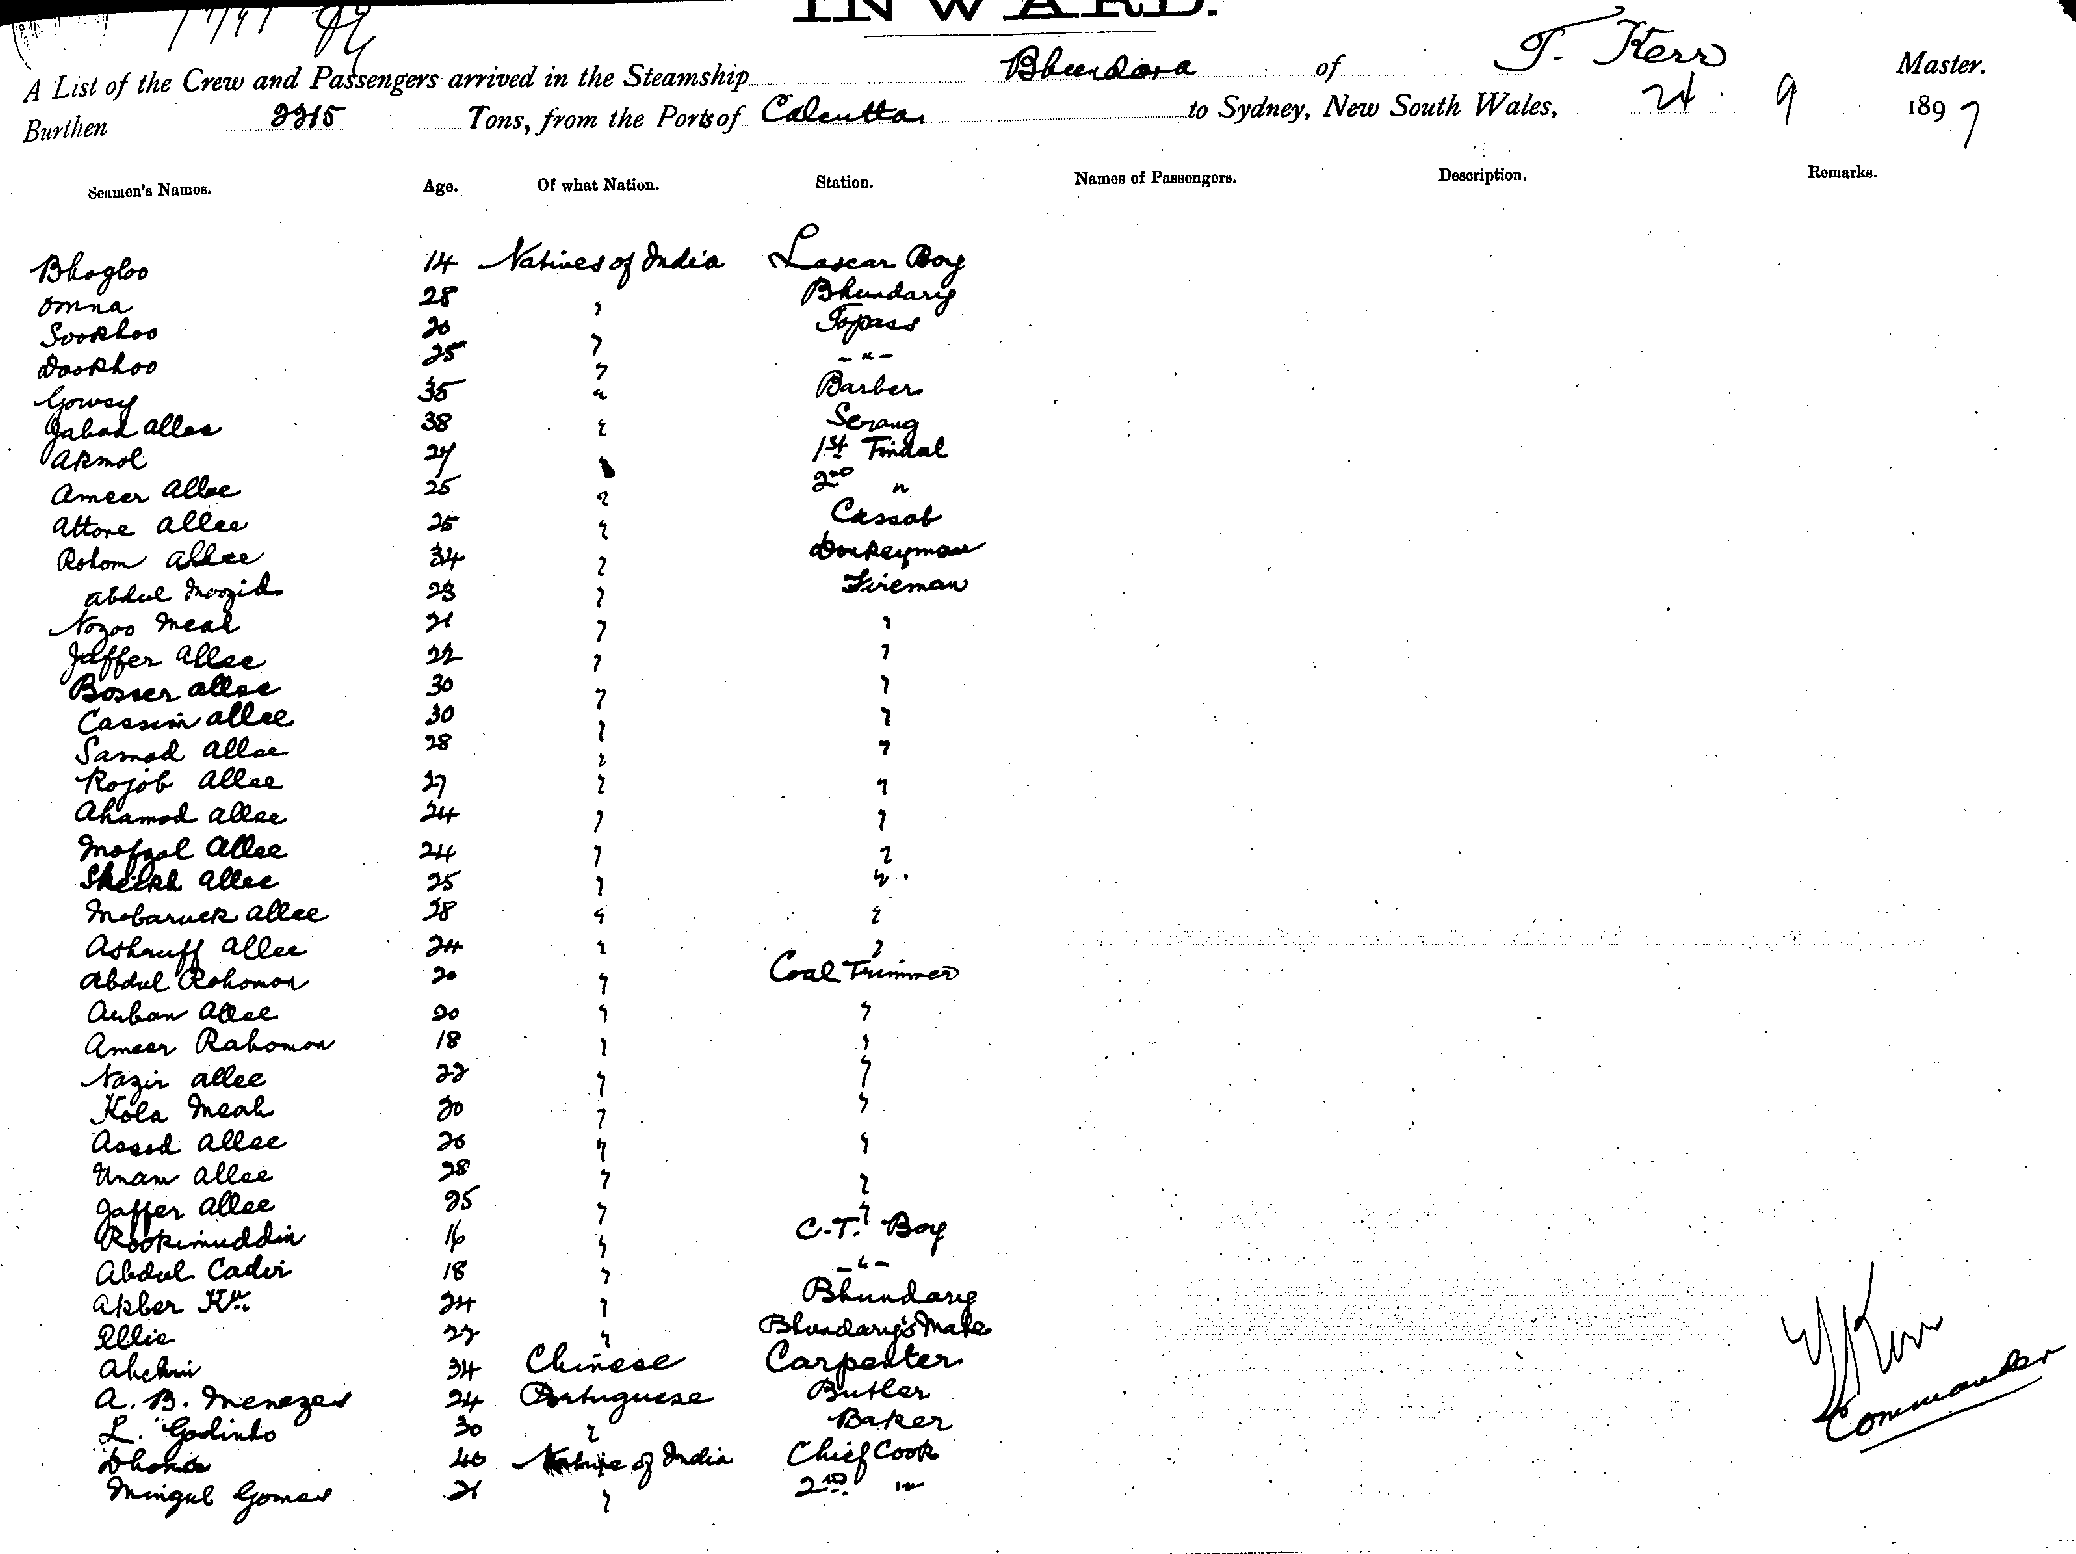 INWARD.
A List of the Crew and Passengers arrived in the Steamship Bhundara of T. Kerr Master.
Burthen 2215 Tons, from the Ports of Calcutta to Sydney, New South Wales, 24 9 1897
Seamen's Names. Age. Of what Nation. Station. Names of Passengers. Description. Remarks.
Bhogloo 14 Natives of India Lascar Boy
Omna 28 " Bhundary
Sookhoo 20 " Topass
Dookhoo 25 " -"-
Gowsy 35 " Barber
Jabad Allee 38 " Serang
Akmol 27 " 1st Tindal
Ameer Allee 25 " 2nd "
Attore Allee 25 " Cassab
Rohom Allee 34 " Donkeyman
Abdul Mozid 23 " Fireman
Nozoo Meah 21 " "
Jaffer Allee 22 " "
Bosser Allee 30 " "
Cassim Allee 30 " "
Samad Allee 28 " "
Rojob Allee 27 " "
Ahamod Allee 24 " "
Mofzol Allee 24 " "
Sheikh Allee 25 " "
Mobaruck Allee 28 " "
Ashruff Allee 24 " "
Abdul Rohomon 20 " Coal Trimmer
Auban Allee 20 " "
Ameer Rahomon 18 " "
Nazir Allee 22 " "
Kola Meah 20 " "
Assod Allee 26 " "
Unam Allee 28 " "
Jaffer Allee 25 " "
Rookimuddin 16 " C.T. Boy
Abdul Cadir 18 " -"-
Akber Kn. 24 " Bhundary
Ellie 22 " Bhundary's Mate
34 Chinese Carpenter
A. B. Menezes 24 Portuguese Butler
L. Godinho 30 " Baker
Dhona 40 Native of India Chief Cook
Mingul Gomes 21 " 2nd "
T Kerr
Commander